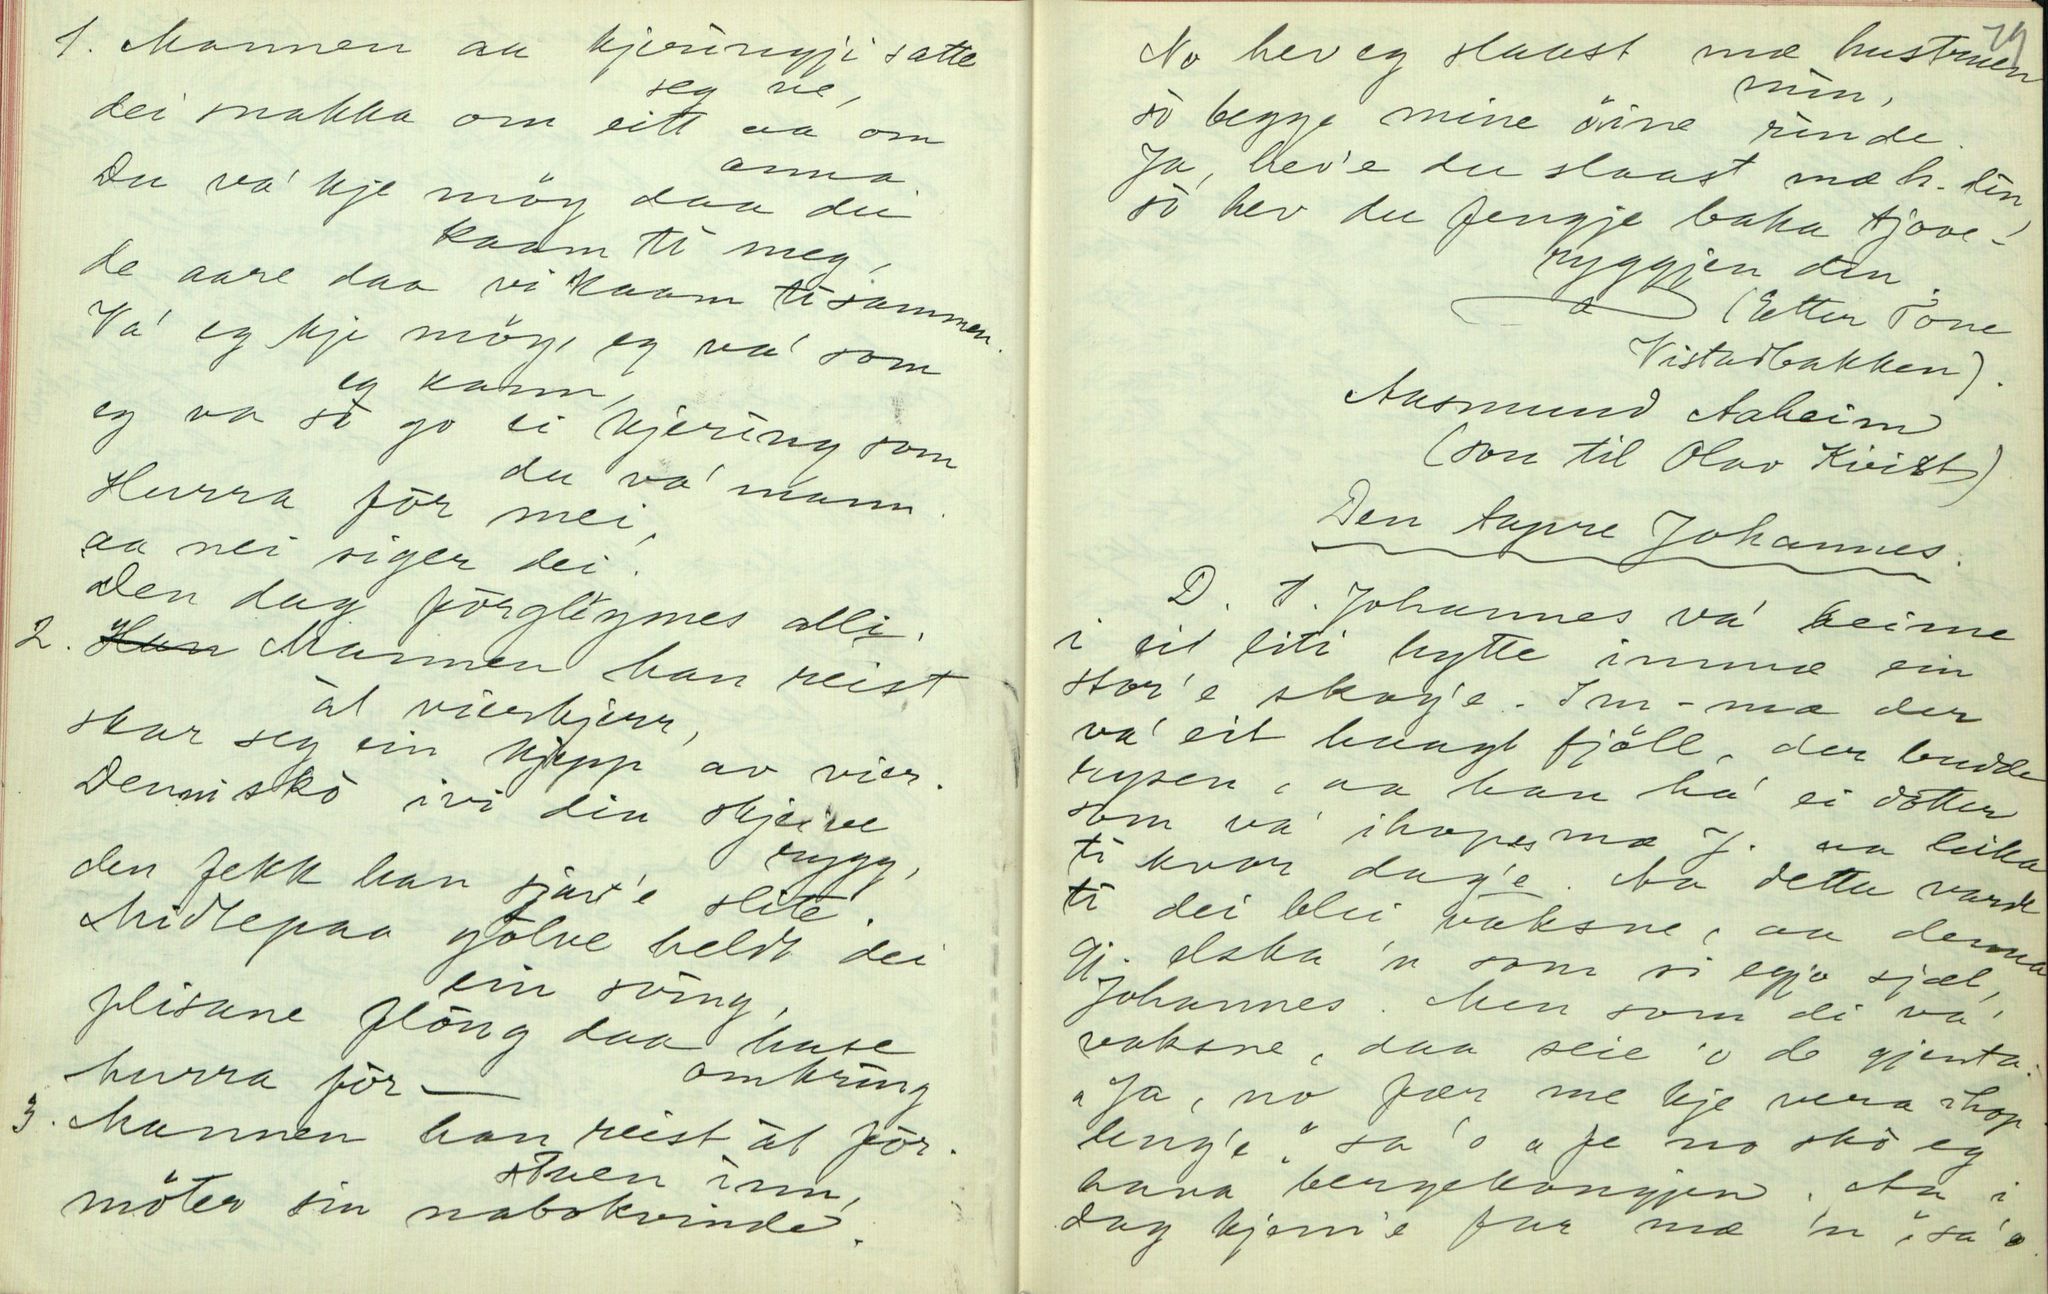 1. Mannen aa kjeringji satte
seg ve,
dei snakka om eitt aa om
anna.
Du va' kje möy daa du
kaam ti meg,
de aare daa vi kaam tisammen.
Va' eg kje möy, eg va' som
eg kann,
eg va so go ei kjering som
du va' mann.
Hurra för mei,
aa nei siger dei.
Den dag förgløymes alli.
2. Han Mannen han reist
åt vierskjerr,
skar seg ein kjepp av vier.
Denni sko ivi din skjeive
rygg,
den fekk han sjav'e slite.
Midtepaa gölve heldt dei
ein söing,
flisane flöng daa huse
omkring
hurra för —
3. Mannen han reist åt för-
stuen inn,
möter sin nabokvinde.
79
No hev eg slaast mæ hustruen
min,
so begge mine öine rinde.
Ja, hev'e du slaast mæ h. din,
so hev du fengje baka tjove-
ryggjen din.
(Etter Tone
Vistadbakken).
Aasmund Aaheim
(son til Olav Kivist)
Den tapre Johannes.
D. T. Johannes va' heime
i eit liti hytte innmæ ein
stor'e skog'e. Inn-mæ der
va' eit haagt fjöll, der budde
rysen, aa han ha' ei dotter
som va' ihopes mæ J. aa leika
ti kvar dag'e. Aa detta varde
ti dei blei vaksne, aa denna
gj. elska 'n som si egjo sjæl,
Johannes. Men som di va'
vaksne, daa seie 'o de gjenta:
"Ja, no fær me kje vera ihop
leng'e" sa 'o "Fe no sko eg
hava bergekongjen. Aa i
dag kjem'e far mæ 'n", sa' o.